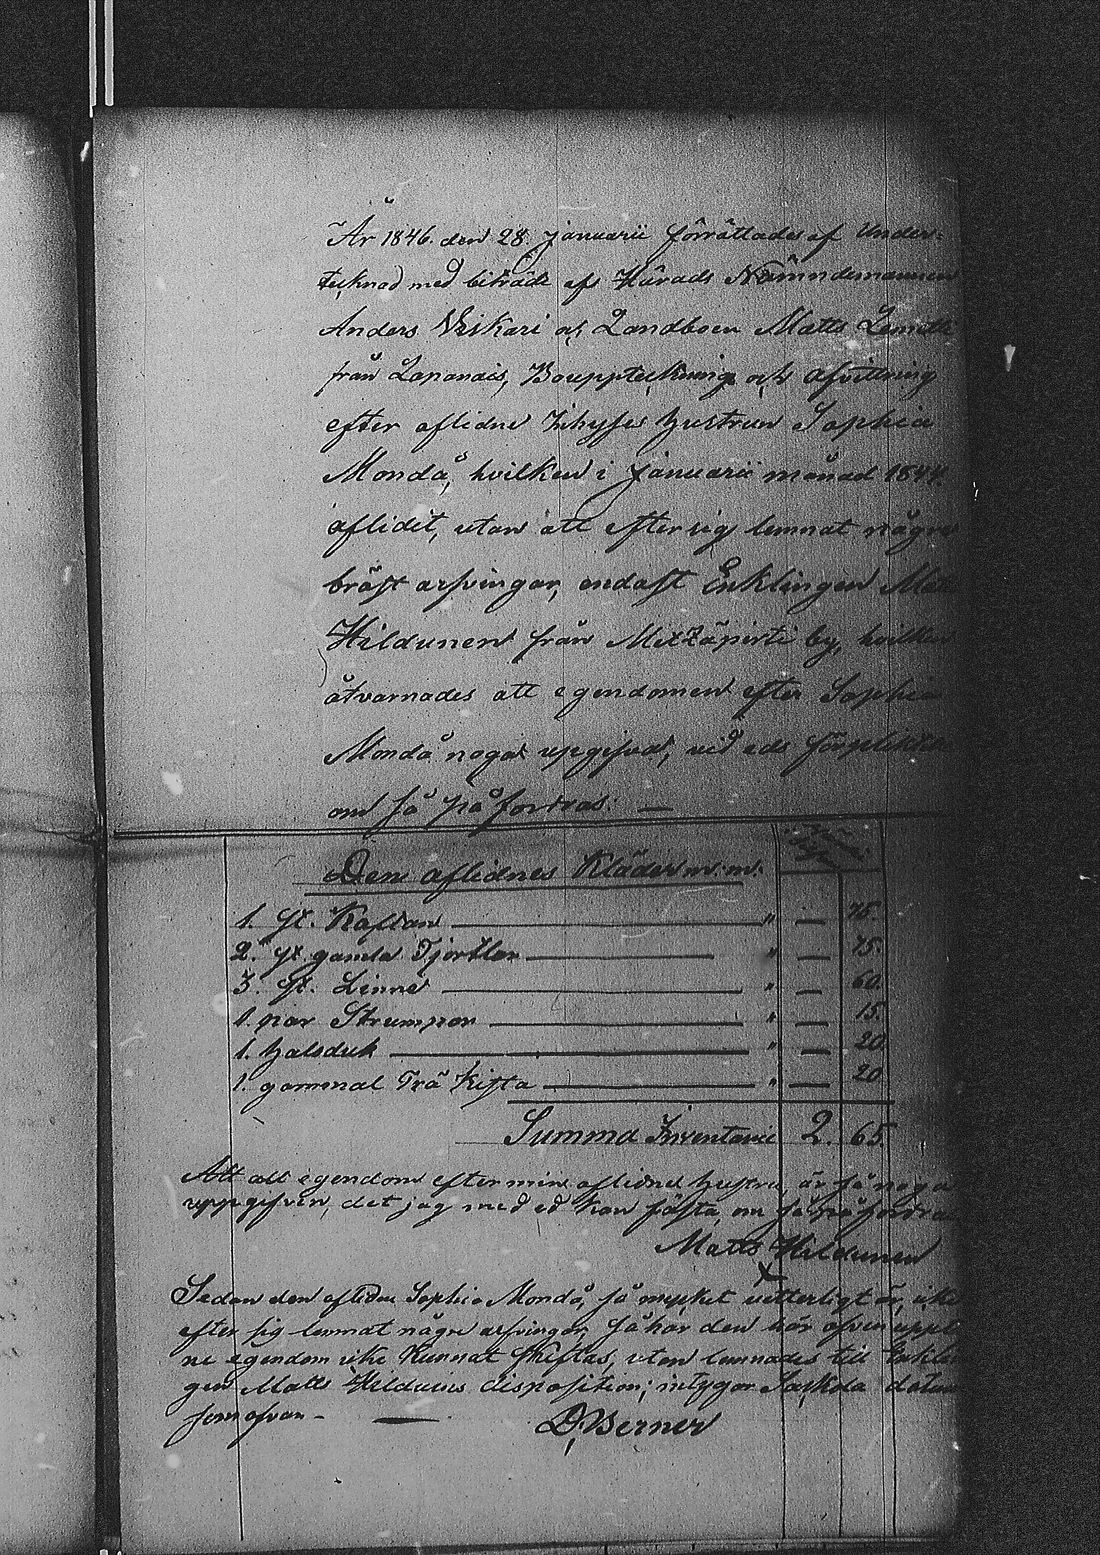 År 1846. den 28. Januarii förrättades af Under-
tecknad med biträde af Härads Nämndemannen
Anders Veikari och Landboen Matts Lemetti
från Lapanais, Bouppteckning och afvittring
efter aflidne Inhyses hustrun Sophia
Mondå, hvilken i Januarii månad 1844.
aflidit, utan att efter sig lemnat några
bröst arfvingar, endast Enklingen Matts
Hildunen från Metzäpirti by, hvilken
åtvarnades att egendomen efter Sophia
Mondå noga upgifva, vid eds förplicktelse
om så påfordras. —
Den aflidnes Kläder m: m:
1. st. Kaftan " — 75.
2. st. gamla Tjortlar " — 75.
3. st. Linne " — 60.
1. par Strumpor " — 15.
1. halsduk " — 20
1. gammal Trä kista " — 20
Summa Inventarii 2. 65
Att all egendom efter min aflidne hustru är så noga
uppgifven, det jag med ed kan fästa, om så påfordras
Matts Hildunen
X
Sedan den aflidne Sophia Mondå, så mycket vetterligt är, icke
efter sig lemnat några arfvingar, så har den här ofvan uppt
ne egendom icke kunnat skiftas, utan lemnades till Enklin
gen Matts Hildunens disposition; intygar Sackola datum
som ofvan. —
D. Werner